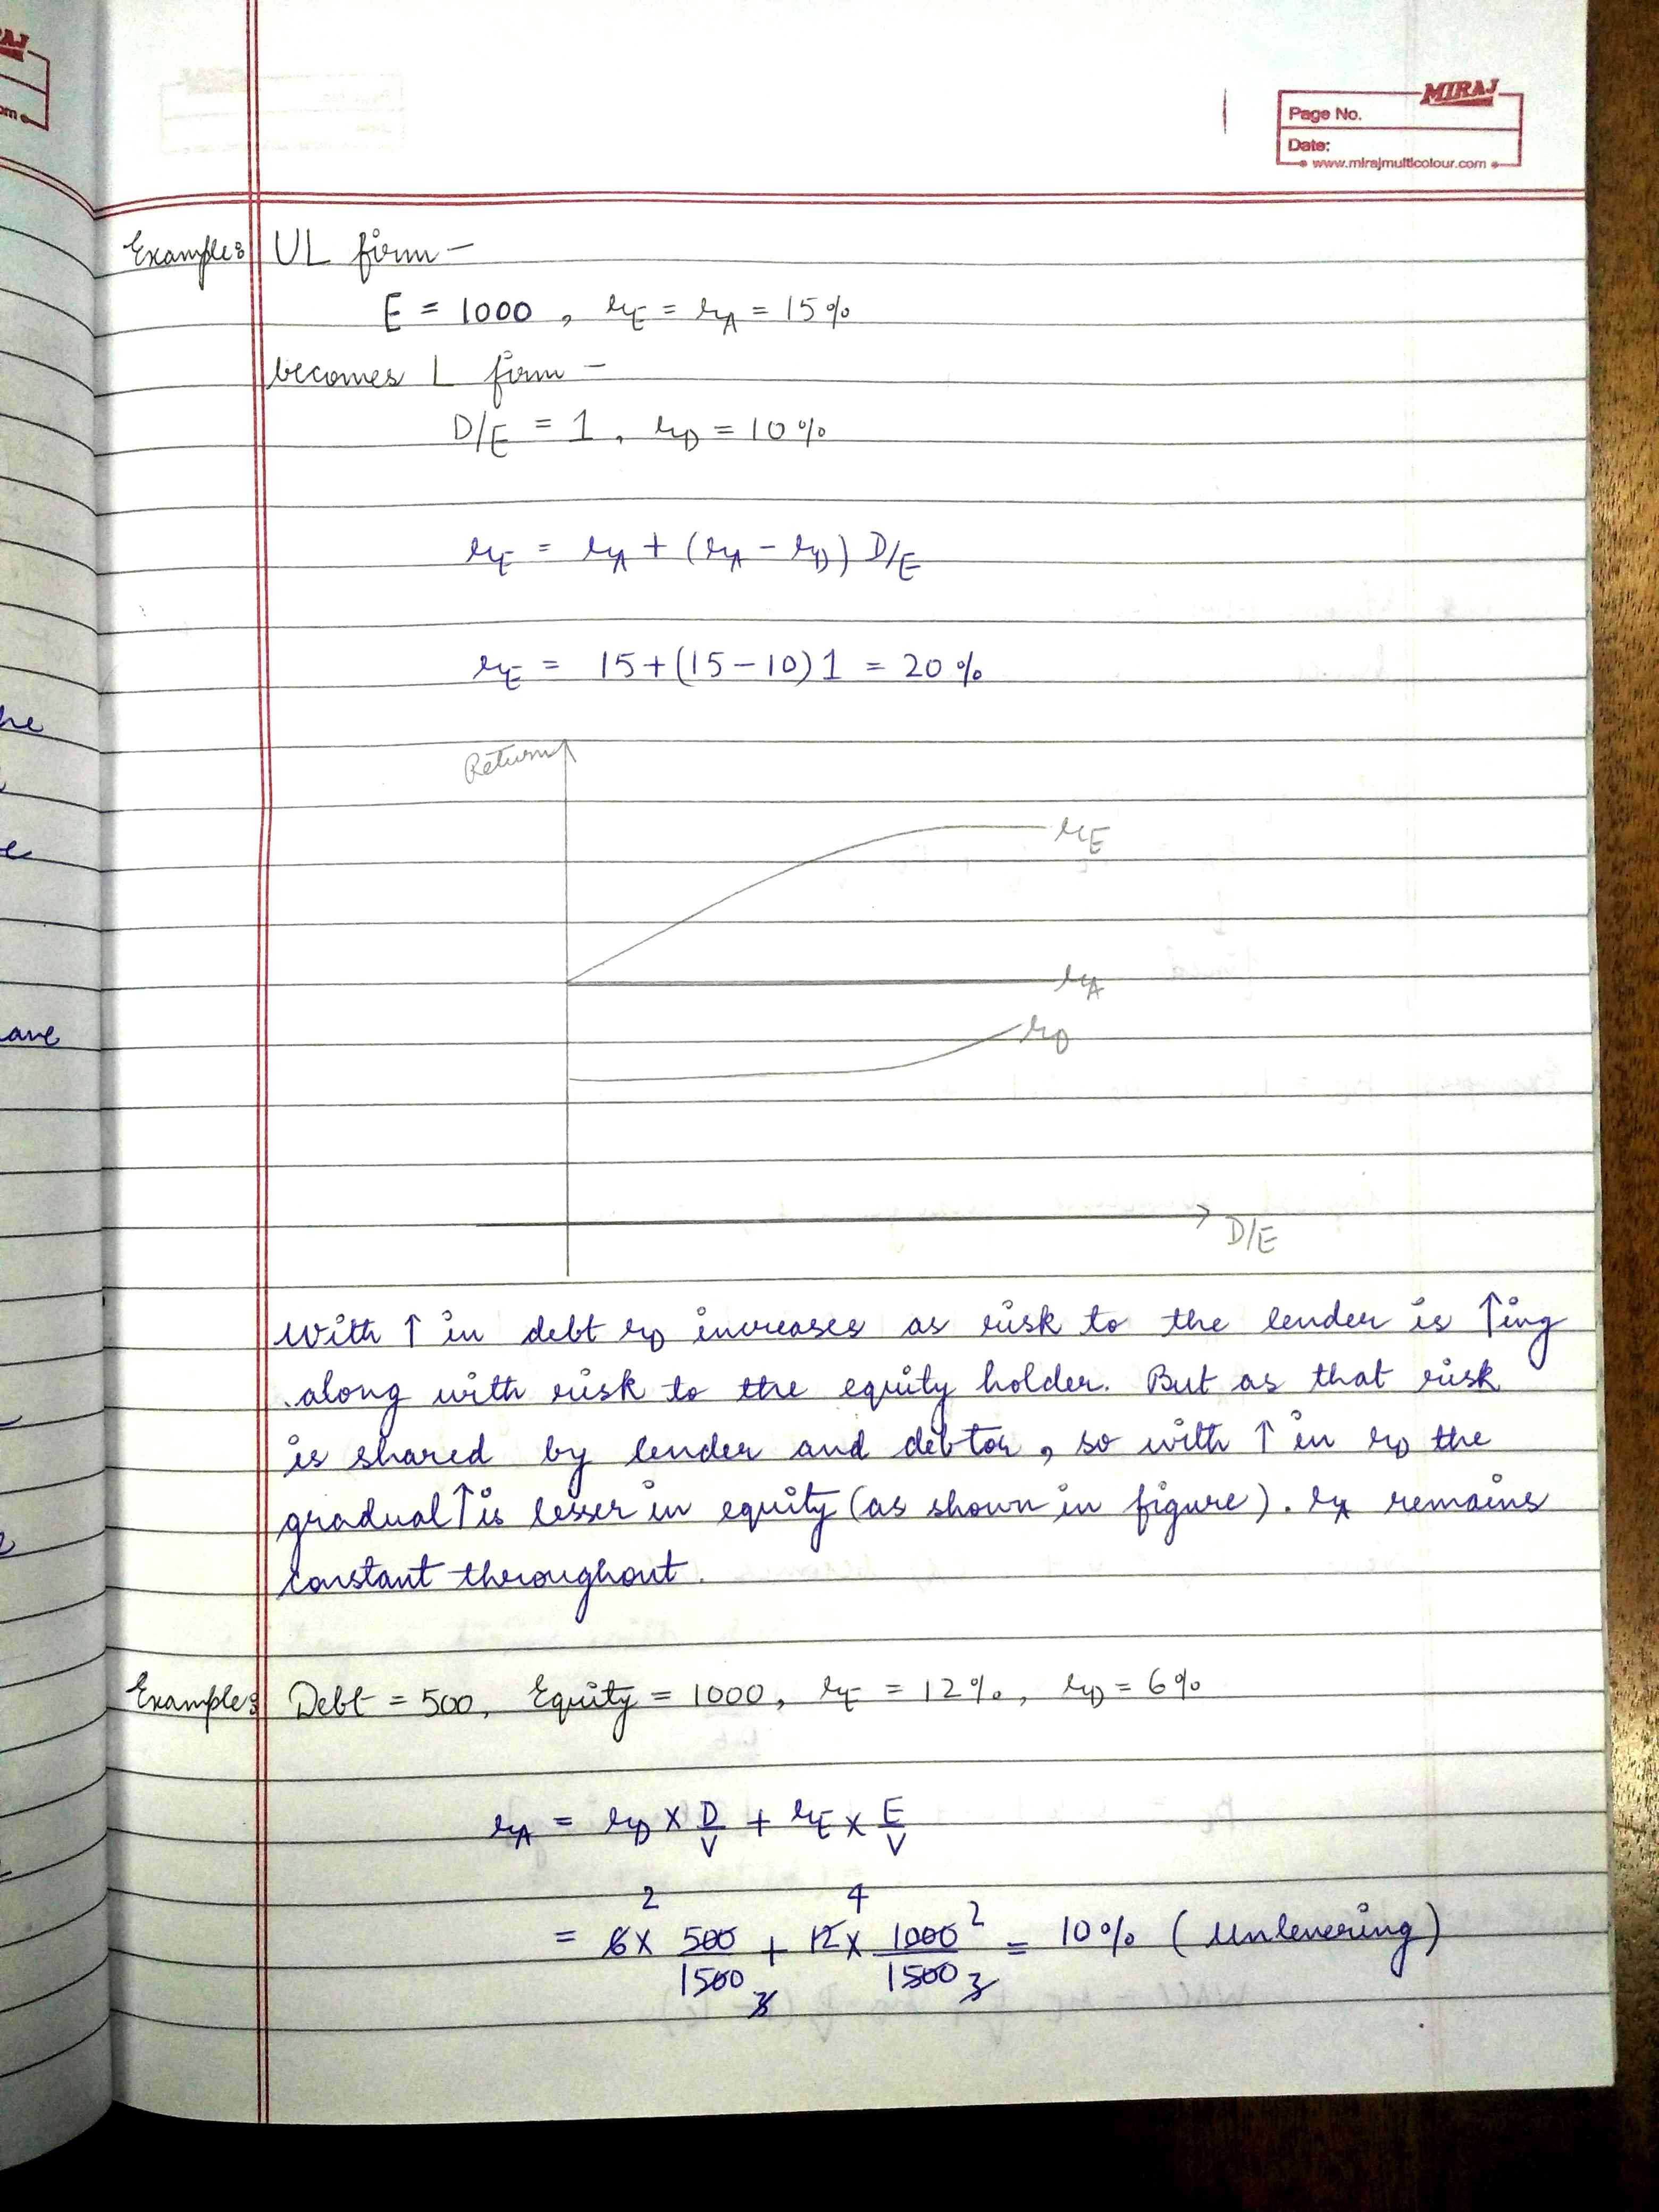 MIRAJ
Page No.
Date:
www.mirajmulticolour.com
Example: UL firm –
E = 1000, rE = rA = 15%
becomes L firm –
D/E = 1, rD = 10%
rE = rA + (rA – rD) D/E
rE = 15+(15–10)1 = 20%
Return
rE
rA
rD
D/E
With ↑ in debt rD increases as risk to the lender is ↑ing
along with risk to the equity holder. But as that risk
is shared by lender and debtor, so with ↑ in rD the
gradual ↑ is lesser in equity (as shown in figure). rA remains
constant throughout.
Example: Debt = 500, Equity = 1000, rE = 12%, rD = 6%
rA = rD × D/V + rE × E/V
2 4
= 6 × 500/1500 3 + 12 × 1000 2/1500 3 = 10% (Unlevering)
he
e
ave